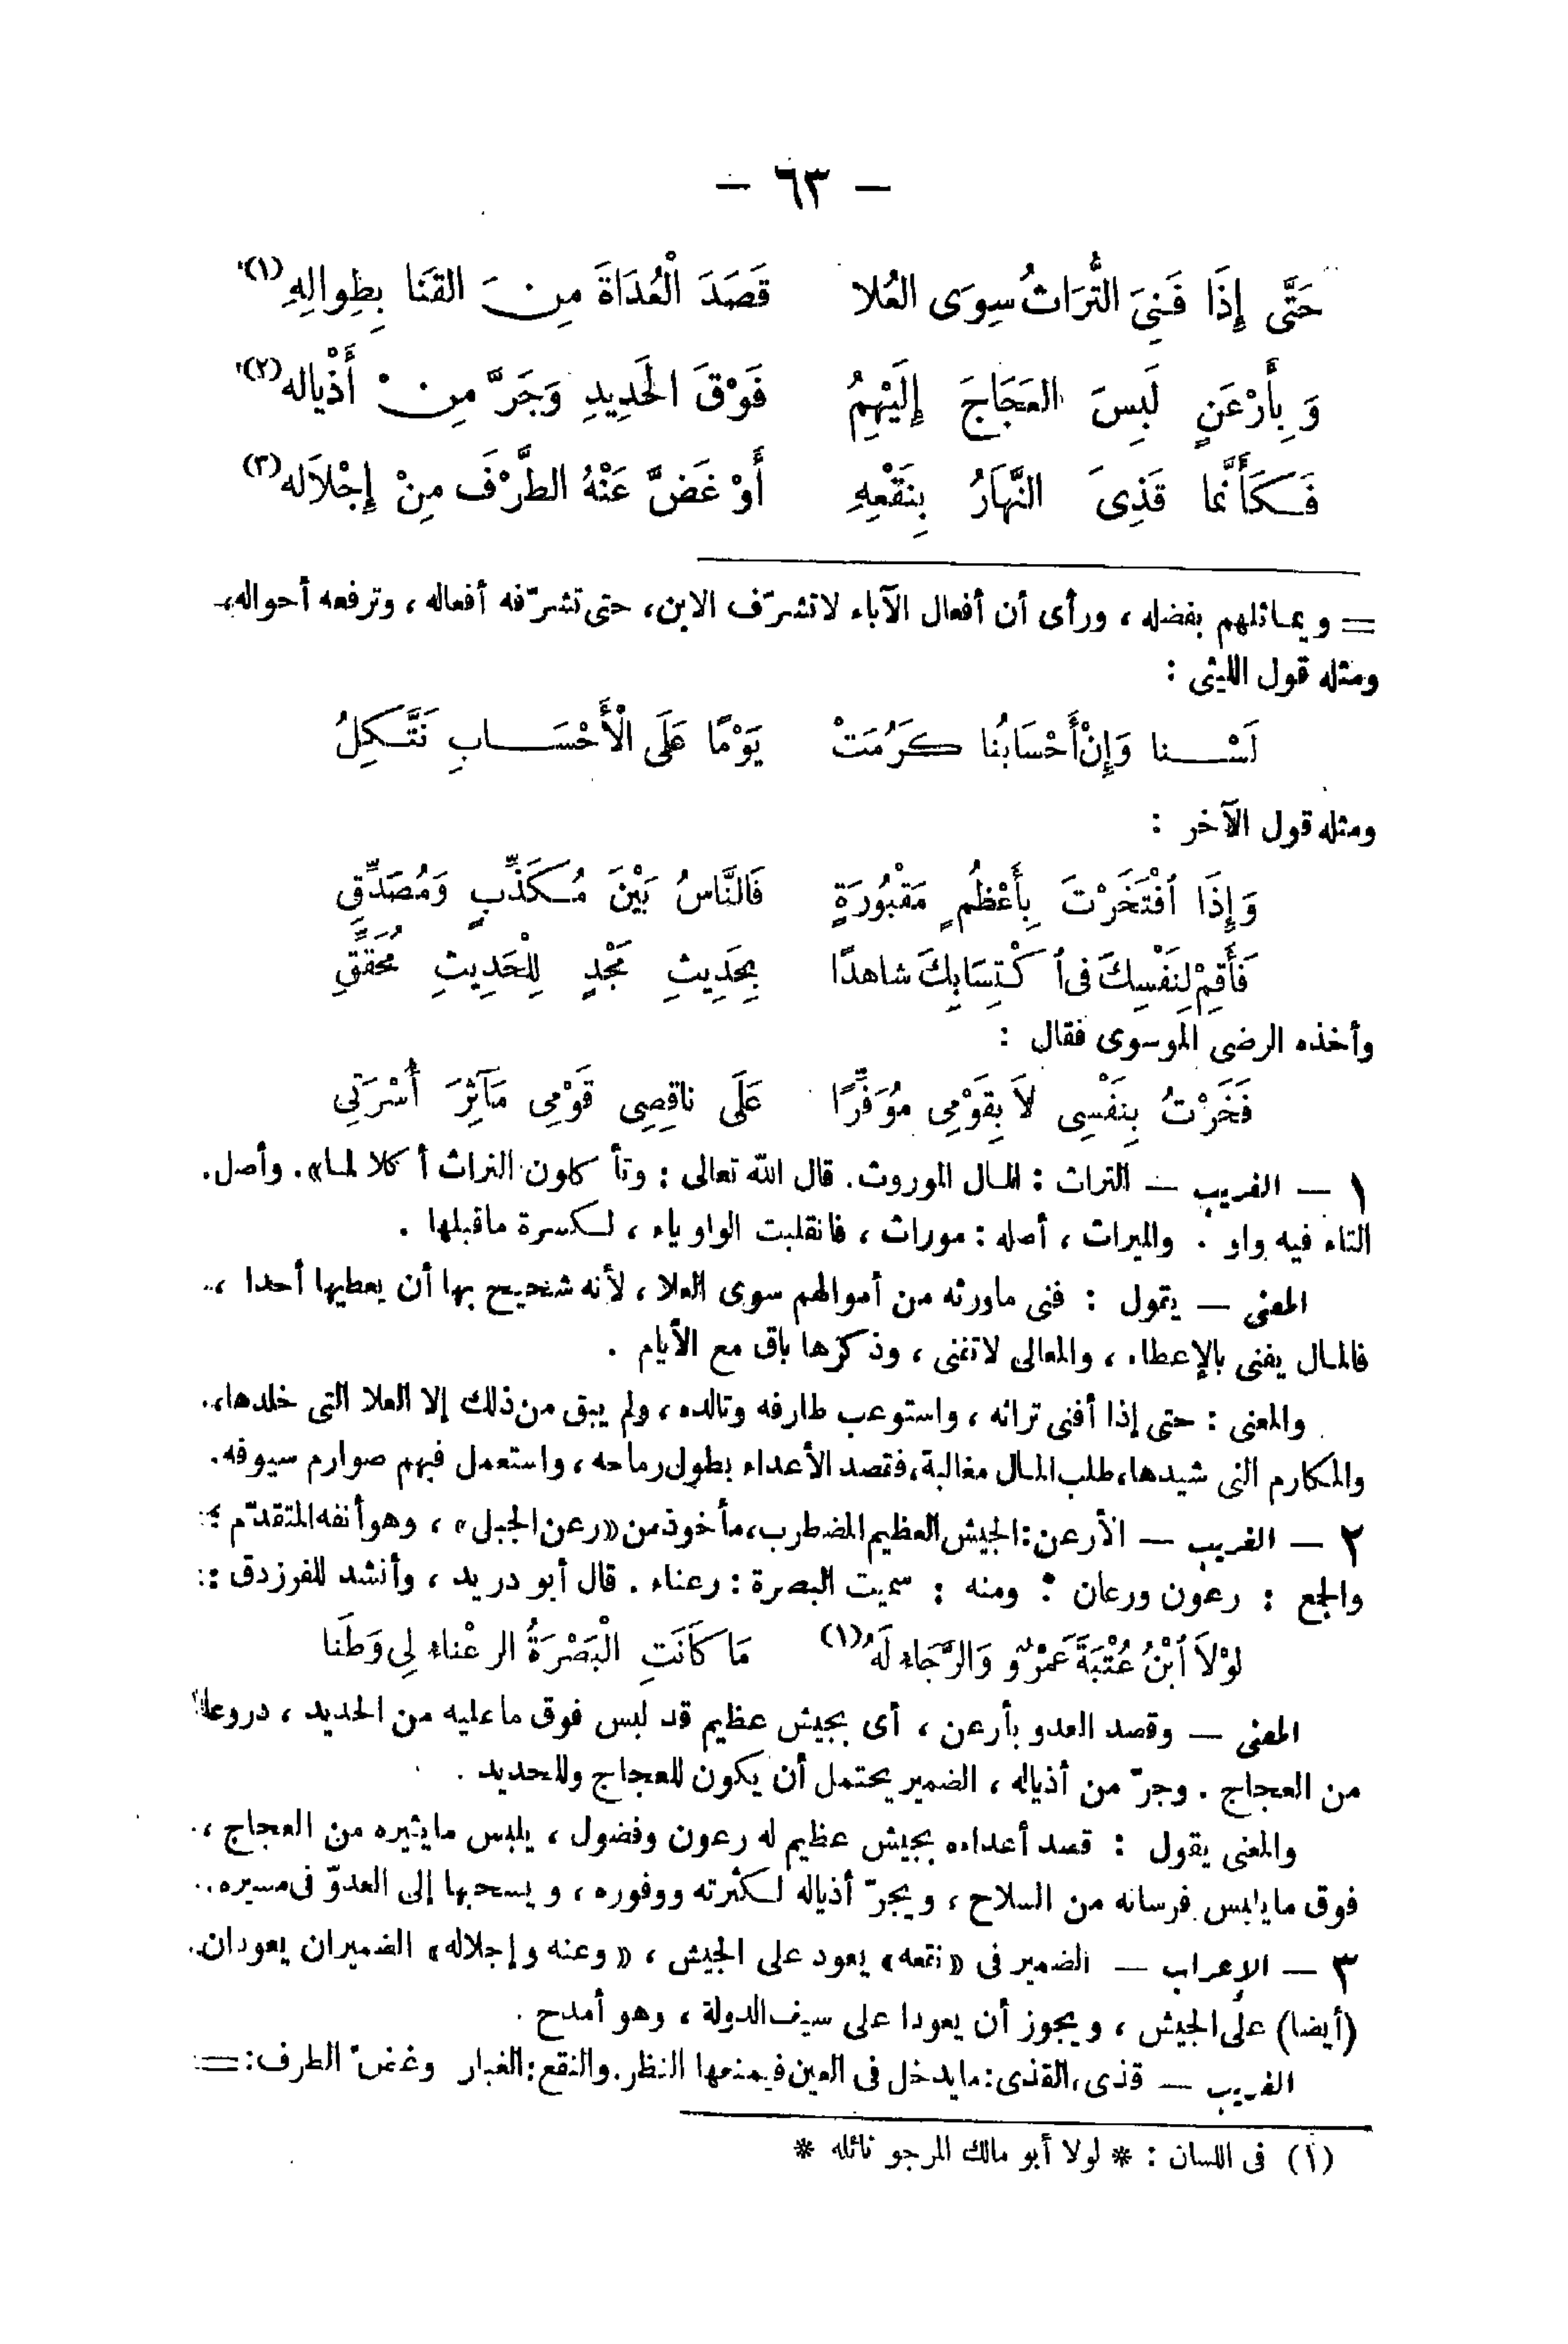 — ٦٣ —
حَتَّى إِذَا فَنِىَ التُّرَاثُ سِوَى العُلا قَصَدَ الْعُدَاةَ مِنَ القَنَا بِطِوالِهِ (١)
وَبِأَرْعَنٍ لَبِسَ العَجَاجَ إِلَيْهِمُ فَوْقَ الحَدِيدِ وَجَرَّ مِنْ أَذْيالهِ (٢)
فَكَأَنَّما قَذِىَ النَّهَارُ بِنَقْعِهِ أَوْ غَضَّ عَنْهُ الطَّرْفَ مِنْ إِجْلاَلهِ (٣)
= ويماثلهم بفضله ، ورأى أن أفعال الآباء لاتشرّف الابن، حتى تشرّفه أفعاله ، وترفعه أحواله،
ومثله قول الليثى :
لَسْنا وَإِنْ أَحْسَابُنا كَرُمَتْ يَوْمًا عَلَى الْأَحْسَابِ نَتَّكِلُ
ومثله قول الآخر :
وَإِذَا ٱفْتَخَرْتَ بِأَعْظُمٍ مَقْبُورَةٍ فَالنَّاسُ بَيْنَ مُكَذِّبٍ وَمُصَدِّقِ
فَأَقِمْ لِنَفْسِكَ فى ٱكْتِسَابِكَ شاهدًا بِحَدِيثِ مَجْدٍ لِلْحَدِيثِ مُحَقِّقِ
وأخذه الرضى الموسوى فقال :
فَخَرْتُ بِنَفْسِى لاَ بِقَوْمِى مُوَفِّرًا عَلَى ناقِصِى قَوْمِى مَآثِرَ أُسْرَتِى
١ — الغريب — التراث : المال الموروث. قال الله تعالى : وتأكلون التراث أكلا لما». وأصل
التاء فيه واو . والميراث ، أصله : موراث ، فانقلبت الواو ياء ، لكسرة ماقبلها .
المعنى — يقول : فنى ماورثه من أموالهم سوى العلا ، لأنه شحيح بها أن يعطيها أحدا ،
فالمال يفنى بالإعطاء ، والمعالى لاتفنى ، وذكرها باق مع الأيام .
والمعنى : حتى إذا أفنى تراثه ، واستوعب طارفه وتالده ، ولم يبق من ذلك إلا العلا التى خلدها،
والمكارم التى شيدها، طلب المال مغالبة، فقصد الأعداء بطول رماحه ، واستعمل فيهم صوارم سيوفه.
٢ — الغريب — الأرعن: الجيش العظيم المضطرب، مأخوذ من «رعن الجبل» ، وهو أنفه المتقدّم ؛
والجمع : رعون ورعان : ومنه : سميت البصرة : رعناء . قال أبو دريد ، وأنشد للفرزدق :
لَوْلاَ ٱبْنُ عُتْبَةَ عَمْرٌو وَالرَّجَاء لَهُ (١) مَا كَانَتِ الْبَصْرَةُ الرعْناء لِى وَطَنا
المعنى — وقصد العدو بأرعن ، أى بجيش عظيم قد لبس فوق ماعليه من الحديد ، دروعا
من العجاج . وجرّ من أذياله ، الضمير يحتمل أن يكون للعجاج وللحديد .
والمعنى يقول : قصد أعداءه بجيش عظيم له رعون وفضول ، يلبس مايثيره من العجاج ،
فوق مايلبس فرسانه من السلاح ، ويجرّ أذياله لكثرته ووفوره ، ويسحبها إلى العدوّ فى مسيره.
٣ — الإعراب — الضمير فى «نقعه» يعود على الجيش ، «وعنه وإجلاله» الضميران يعودان
(أيضا) على الجيش ، ويجوز أن يعودا على سيف الدولة ، وهو أمدح .
الغريب — قذى، القذى: مايدخل فى العين فيمنعها النظر. والنقع: الغبار وغضّ الطرف: =
(١) فى اللسان : * لولا أبو مالك المرجو نائله *